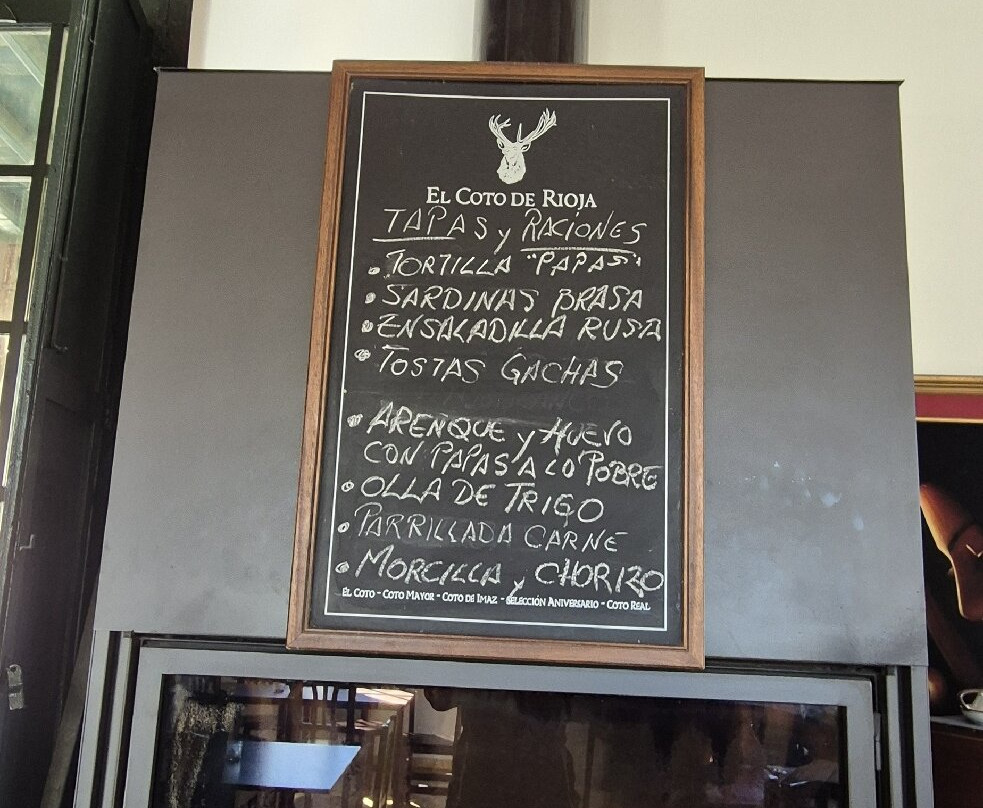 EL COTO DE RIOJA
TAPAS y RACIONES
• TORTILLA "PAPAS"
• SARDINAS BRASA
• ENSALADILLA RUSA
• TOSTAS GACHAS
• ARENQUE y HUEVO
CON PAPAS A LO POBRE
• OLLA DE TRIGO
• PARRILLADA CARNE
• MORCILLA y CHORIZO
EL COTO - COTO MAYOR - COTO DE IMAZ - SELECCIÓN ANIVERSARIO - COTO REAL